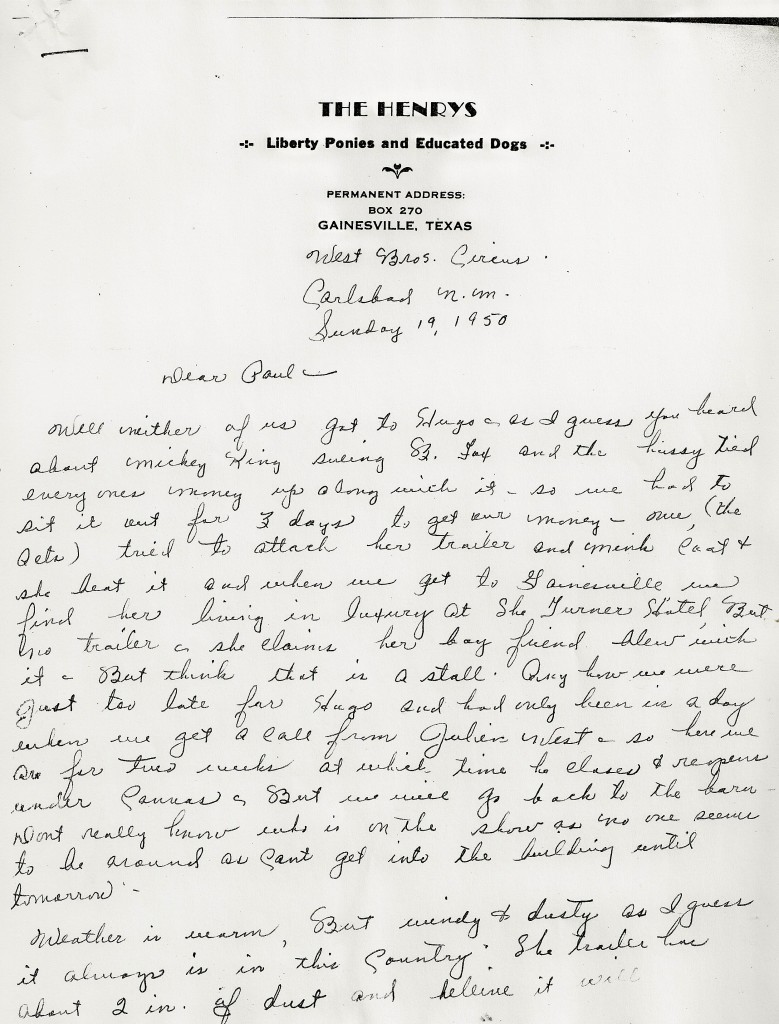 THE HENRYS
-:- Liberty Ponies and Educated Dogs -:-
PERMANENT ADDRESS:
BOX 270
GAINESVILLE, TEXAS
West Bros. Circus.
Carlsbad N.M.
Sunday 19, 1950
Dear Paul -
Well neither of us got to Hugo - as I guess you heard
about Mickey King sueing B. Fox and the hussy tied
every ones money up along with it - so we had to
sit it out for 3 days to get our money - we, (the
acts) tried to attach her trailer and mink coat &
she beat it and when we get to Gainesville we
find her living in luxury at The Turner Hotel, But
no trailer - she claims her boy friend blew with
it - But think that is a stall. Any how we were
just too late for Hugo and had only been in a day
when we get a call from Julien West - so here we
are for two weeks at which time he closes & reopens
under Canvas - But we will go back to the barn -
Dont really know who is on the show as no one seems
to be around as cant get into the building until
tomorrow -
Weather is warm, But windy & dusty as I guess
it always is in this Country. The trailer has
about 2 in. of dust and believe it will